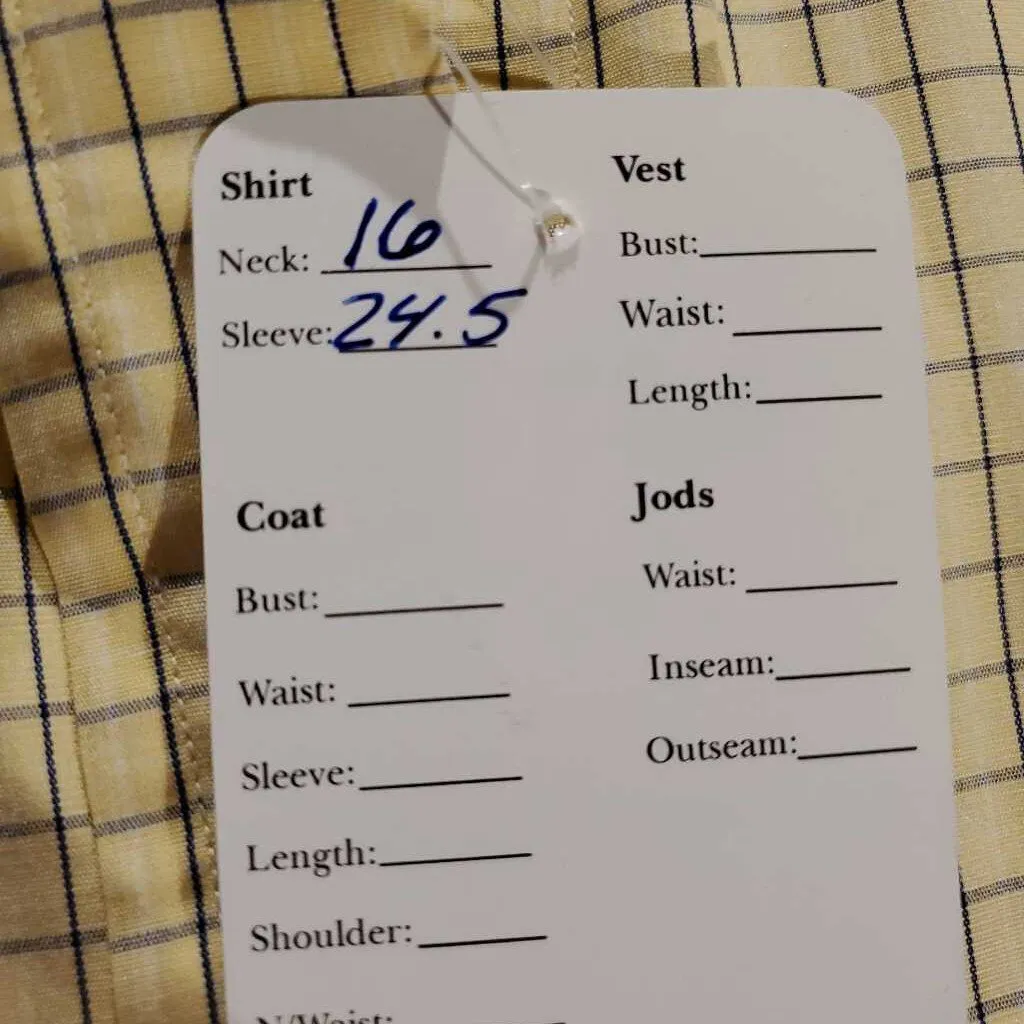 Shirt
Neck: 16
Sleeve: 24.5
Vest
Bust:
Waist:
Length:
Coat
Bust:
Waist:
Sleeve:
Length:
Shoulder:
N/Waist:
Jods
Waist:
Inseam:
Outseam: